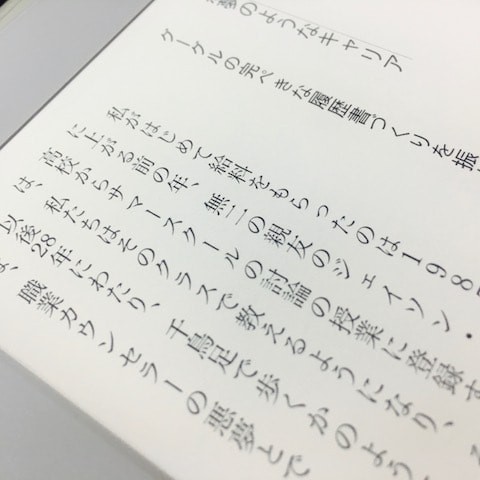 夢のようなキャリア
グーグルの完ぺきな履歴書づくりを振
私がはじめて給料をもらったのは198
に上がる前の年、無二の親友のジェイソン・
高校からサマースクールの討論の授業に登録す
は、私たちはそのクラスで教えるようになり、そ
以後28年にわたり、千鳥足で歩くかのように
は、職業カウンセラーの悪夢とで